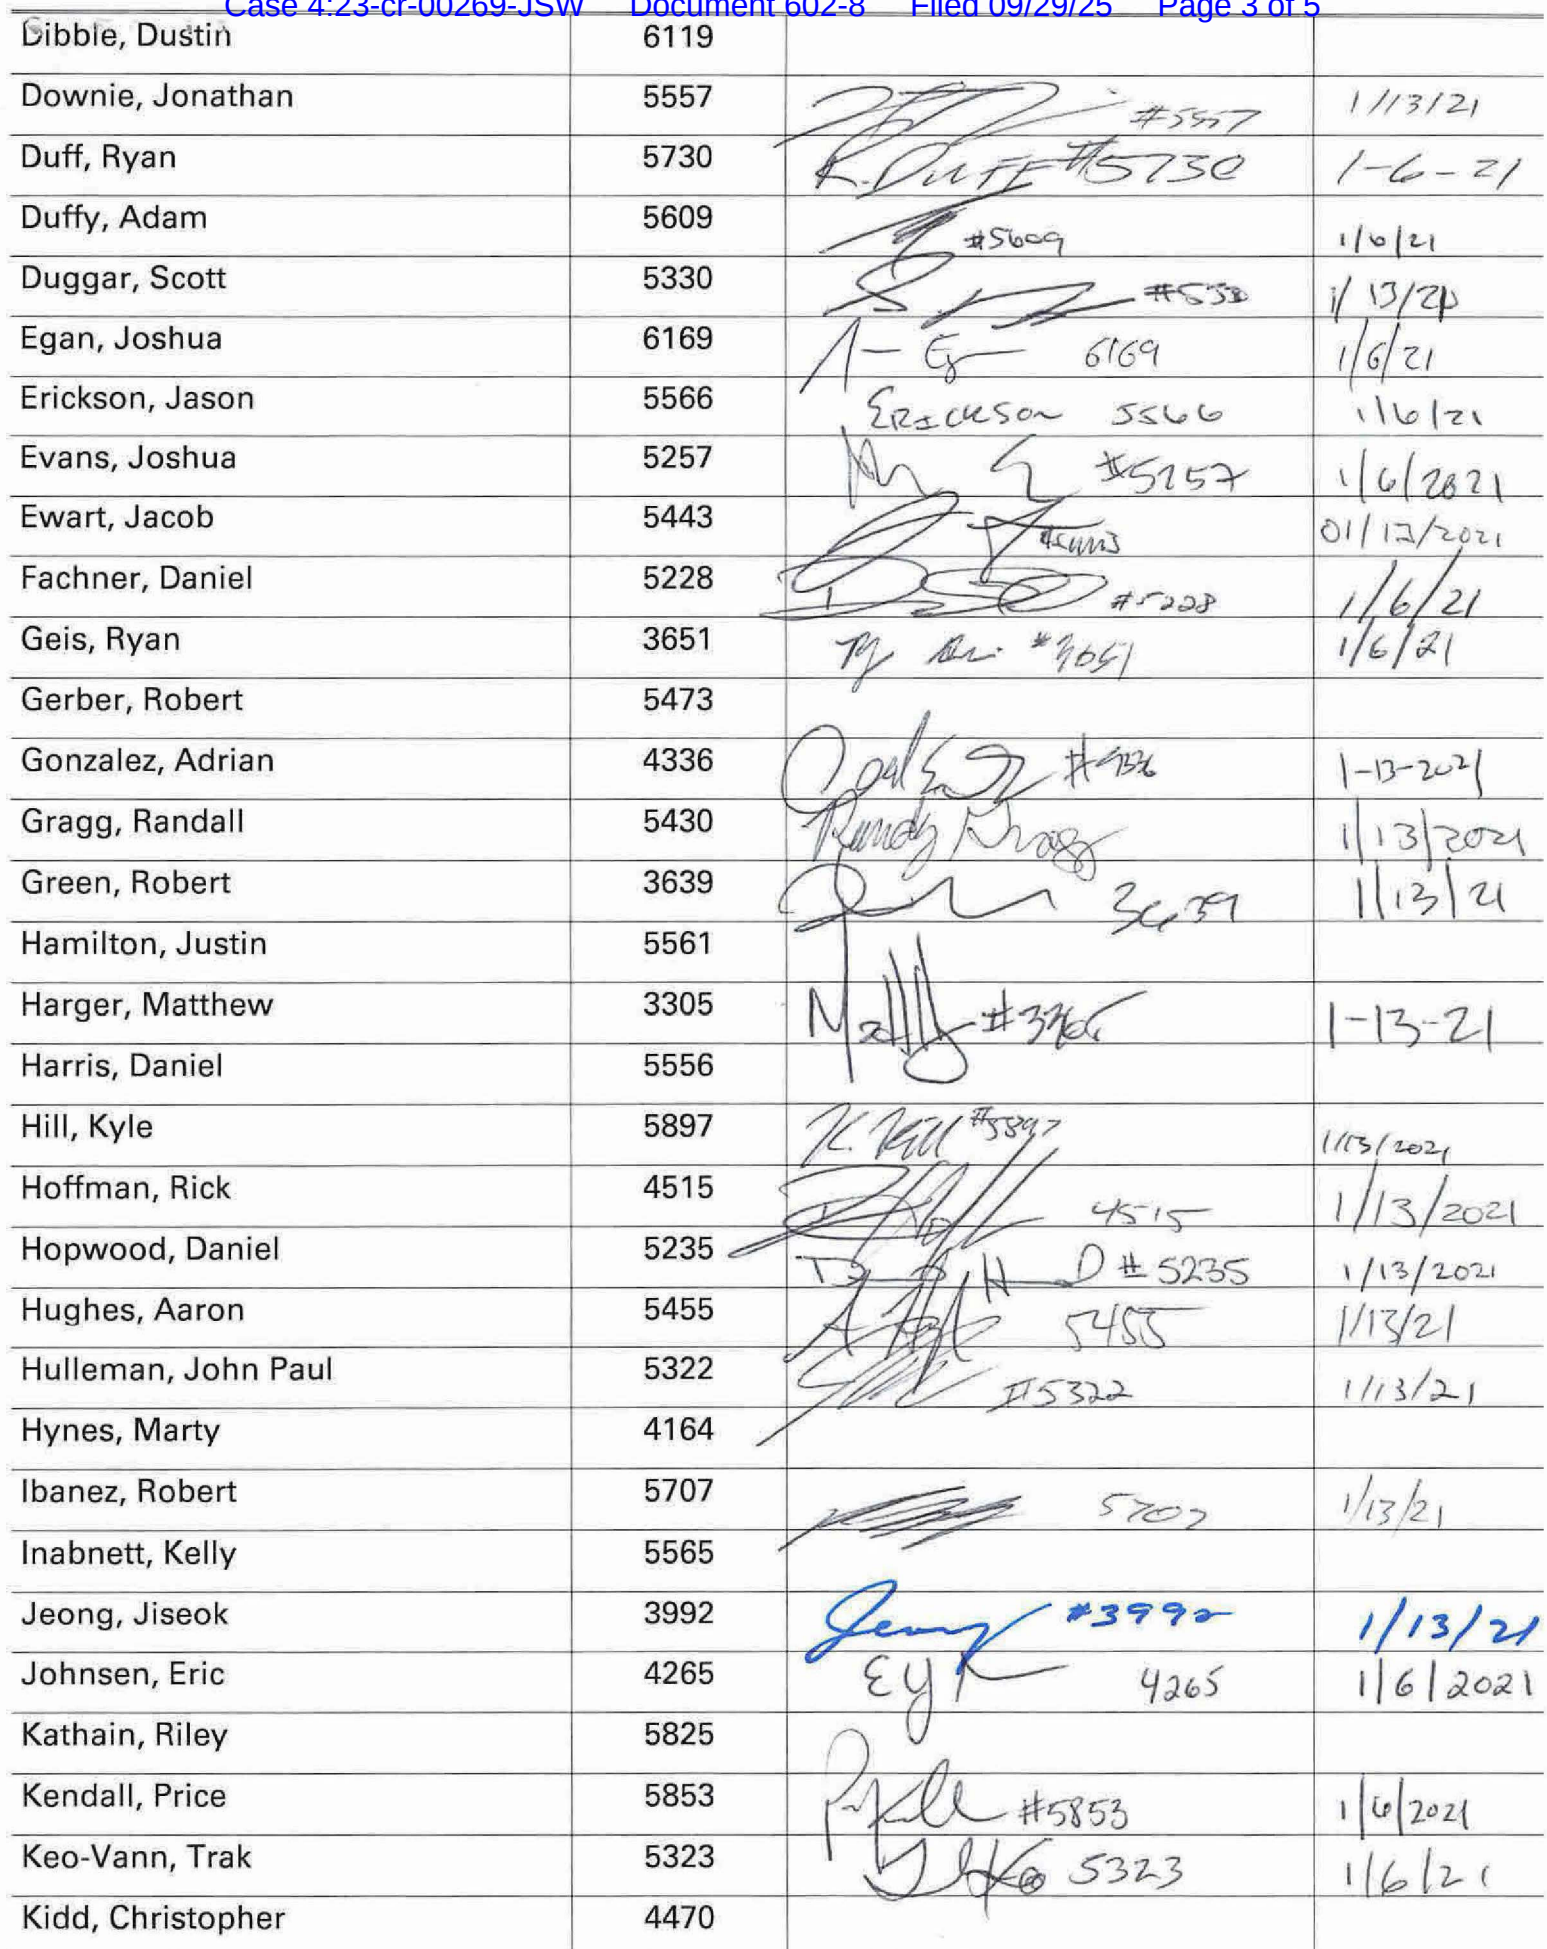 Case 4:23-cr-00269-JSW Document 602-8 Filed 09/29/25 Page 3 of 5
Dibble, Dustin 6119
Downie, Jonathan 5557 #5557 1/13/21
Duff, Ryan 5730 R. DUFF #5730 1-6-21
Duffy, Adam 5609 #5609 1/6/21
Duggar, Scott 5330 #5330 1/13/21
Egan, Joshua 6169 6169 1/6/21
Erickson, Jason 5566 ERICKSON 5566 1/6/21
Evans, Joshua 5257 #5257 1/6/2021
Ewart, Jacob 5443 #5443 01/13/2021
Fachner, Daniel 5228 #5228 1/6/21
Geis, Ryan 3651 #3651 1/6/21
Gerber, Robert 5473
Gonzalez, Adrian 4336 #4336 1-13-2021
Gragg, Randall 5430 Randy Gragg 1/13/2021
Green, Robert 3639 3639 1/13/21
Hamilton, Justin 5561
Harger, Matthew 3305 #3305 1-13-21
Harris, Daniel 5556
Hill, Kyle 5897 K. Hill #5897 1/13/2021
Hoffman, Rick 4515 4515 1/13/2021
Hopwood, Daniel 5235 D # 5235 1/13/2021
Hughes, Aaron 5455 5455 1/13/21
Hulleman, John Paul 5322 #5322 1/13/21
Hynes, Marty 4164
Ibanez, Robert 5707 5707 1/13/21
Inabnett, Kelly 5565
Jeong, Jiseok 3992 Jeong #3992 1/13/21
Johnsen, Eric 4265 4265 1/6/2021
Kathain, Riley 5825
Kendall, Price 5853 #5853 1/6/2021
Keo-Vann, Trak 5323 5323 1/6/21
Kidd, Christopher 4470